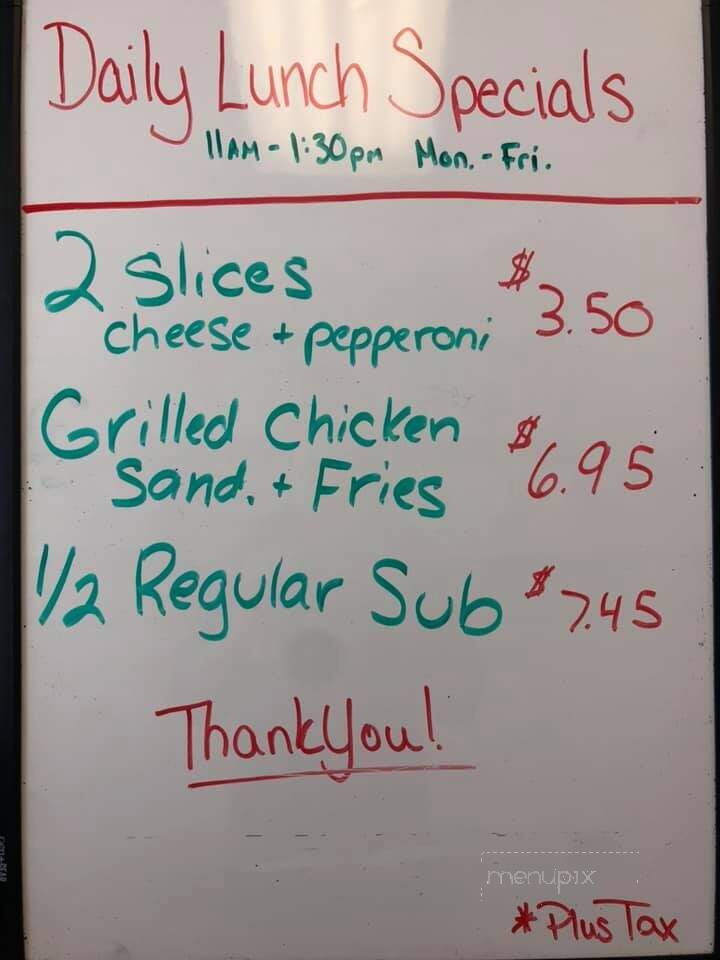 Daily Lunch Specials
11AM - 1:30pm Mon. - Fri.
2 Slices $3.50
cheese + pepperoni
Grilled Chicken $6.95
Sand. + Fries
1/2 Regular Sub $7.45
Thank You!
menupix
*Plus Tax